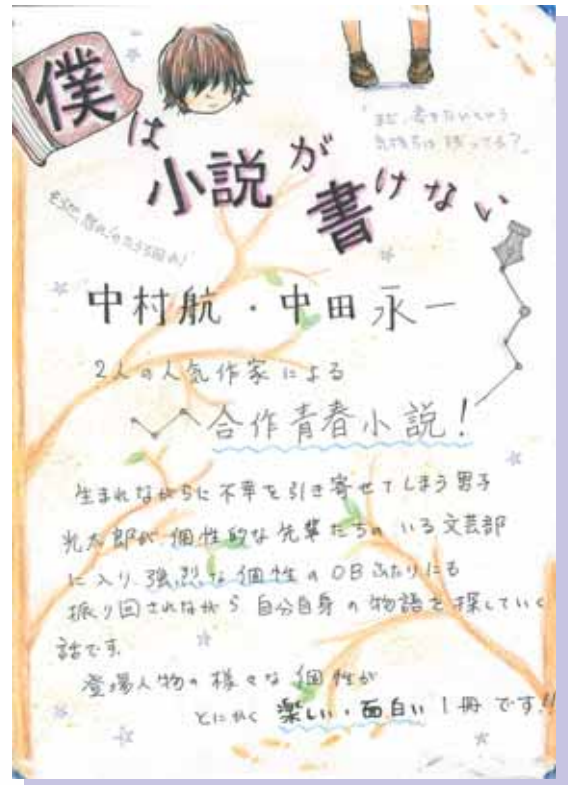 僕は小説が書けない
「まだ、書きたいという
気持ちは残ってる?」
中村航・中田永一
2人の人気作家による
合作青春小説!
生まれながらに不幸を引き寄せてしまう男子
光太郎が個性的な先輩たちのいる文芸部
に入り、強烈な個性のOBふたりにも
振り回されながら自分自身の物語を探していく
話です。
登場人物の様々な個性が
とにかく楽しい・面白い1冊です!!